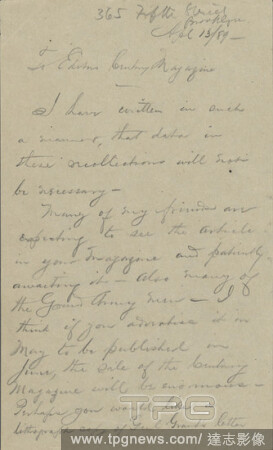 365 Fifth
Brooklyn
13/89 -
To Editor Century Magazine
I have written in such
a manner, that data in
these recollections will not
be necessary -
Many of my friends are
expecting to see the article
in your magazine and patiently
awaiting it - Also many of
the Grand Army men - I
think if you advertise it in
May to be published in
June, the sale of the Century
Magazine will be enormous -
Perhaps you would like a
copy of Letter
TPG
www.tpgnews.com / 達志影像